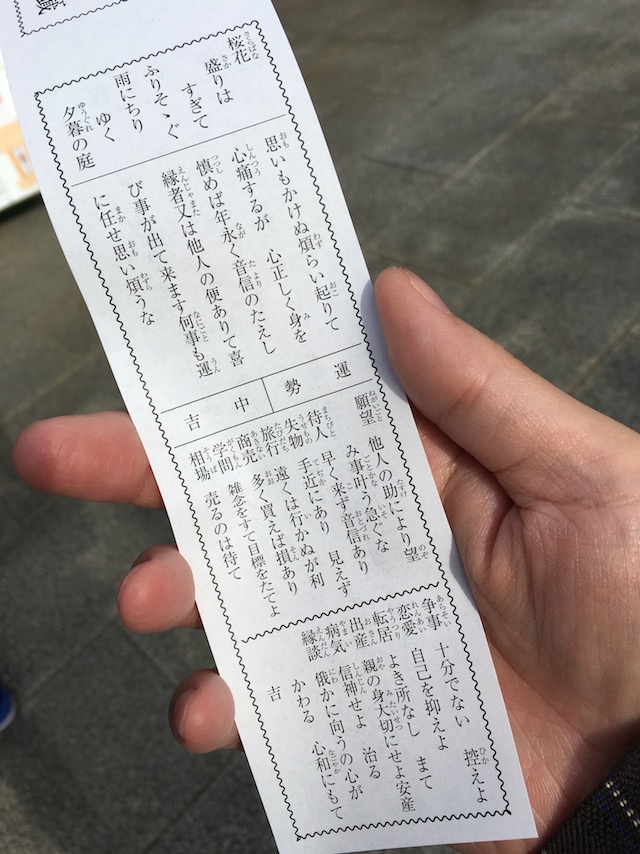 桜花
盛りは
すぎて
ふりそゝぐ
雨にちり
ゆく
夕暮の庭
思いもかけぬ煩らい起りて
心痛するが 心正しく身を
慎めば年永く音信のたえし
縁者又は他人の便ありて喜
び事が出て来ます何事も運
に任せ思い煩うな
運勢
中吉
願望 他人の助により望
み事叶う急ぐな
待人 早く来す音信あり
失物 手近にあり 見えず
旅行 遠くは行かぬが利
商売 多く買えば損あり
学問 雑念をすて目標をたてよ
相場 売るのは待て
争事 十分でない 控えよ
恋愛 自己を抑えよ まて
転居 よき所なし
出産 親の身大切にせよ安産
病気 信神せよ 治る
縁談 俄かに向うの心が
かわる 心和にもて
吉